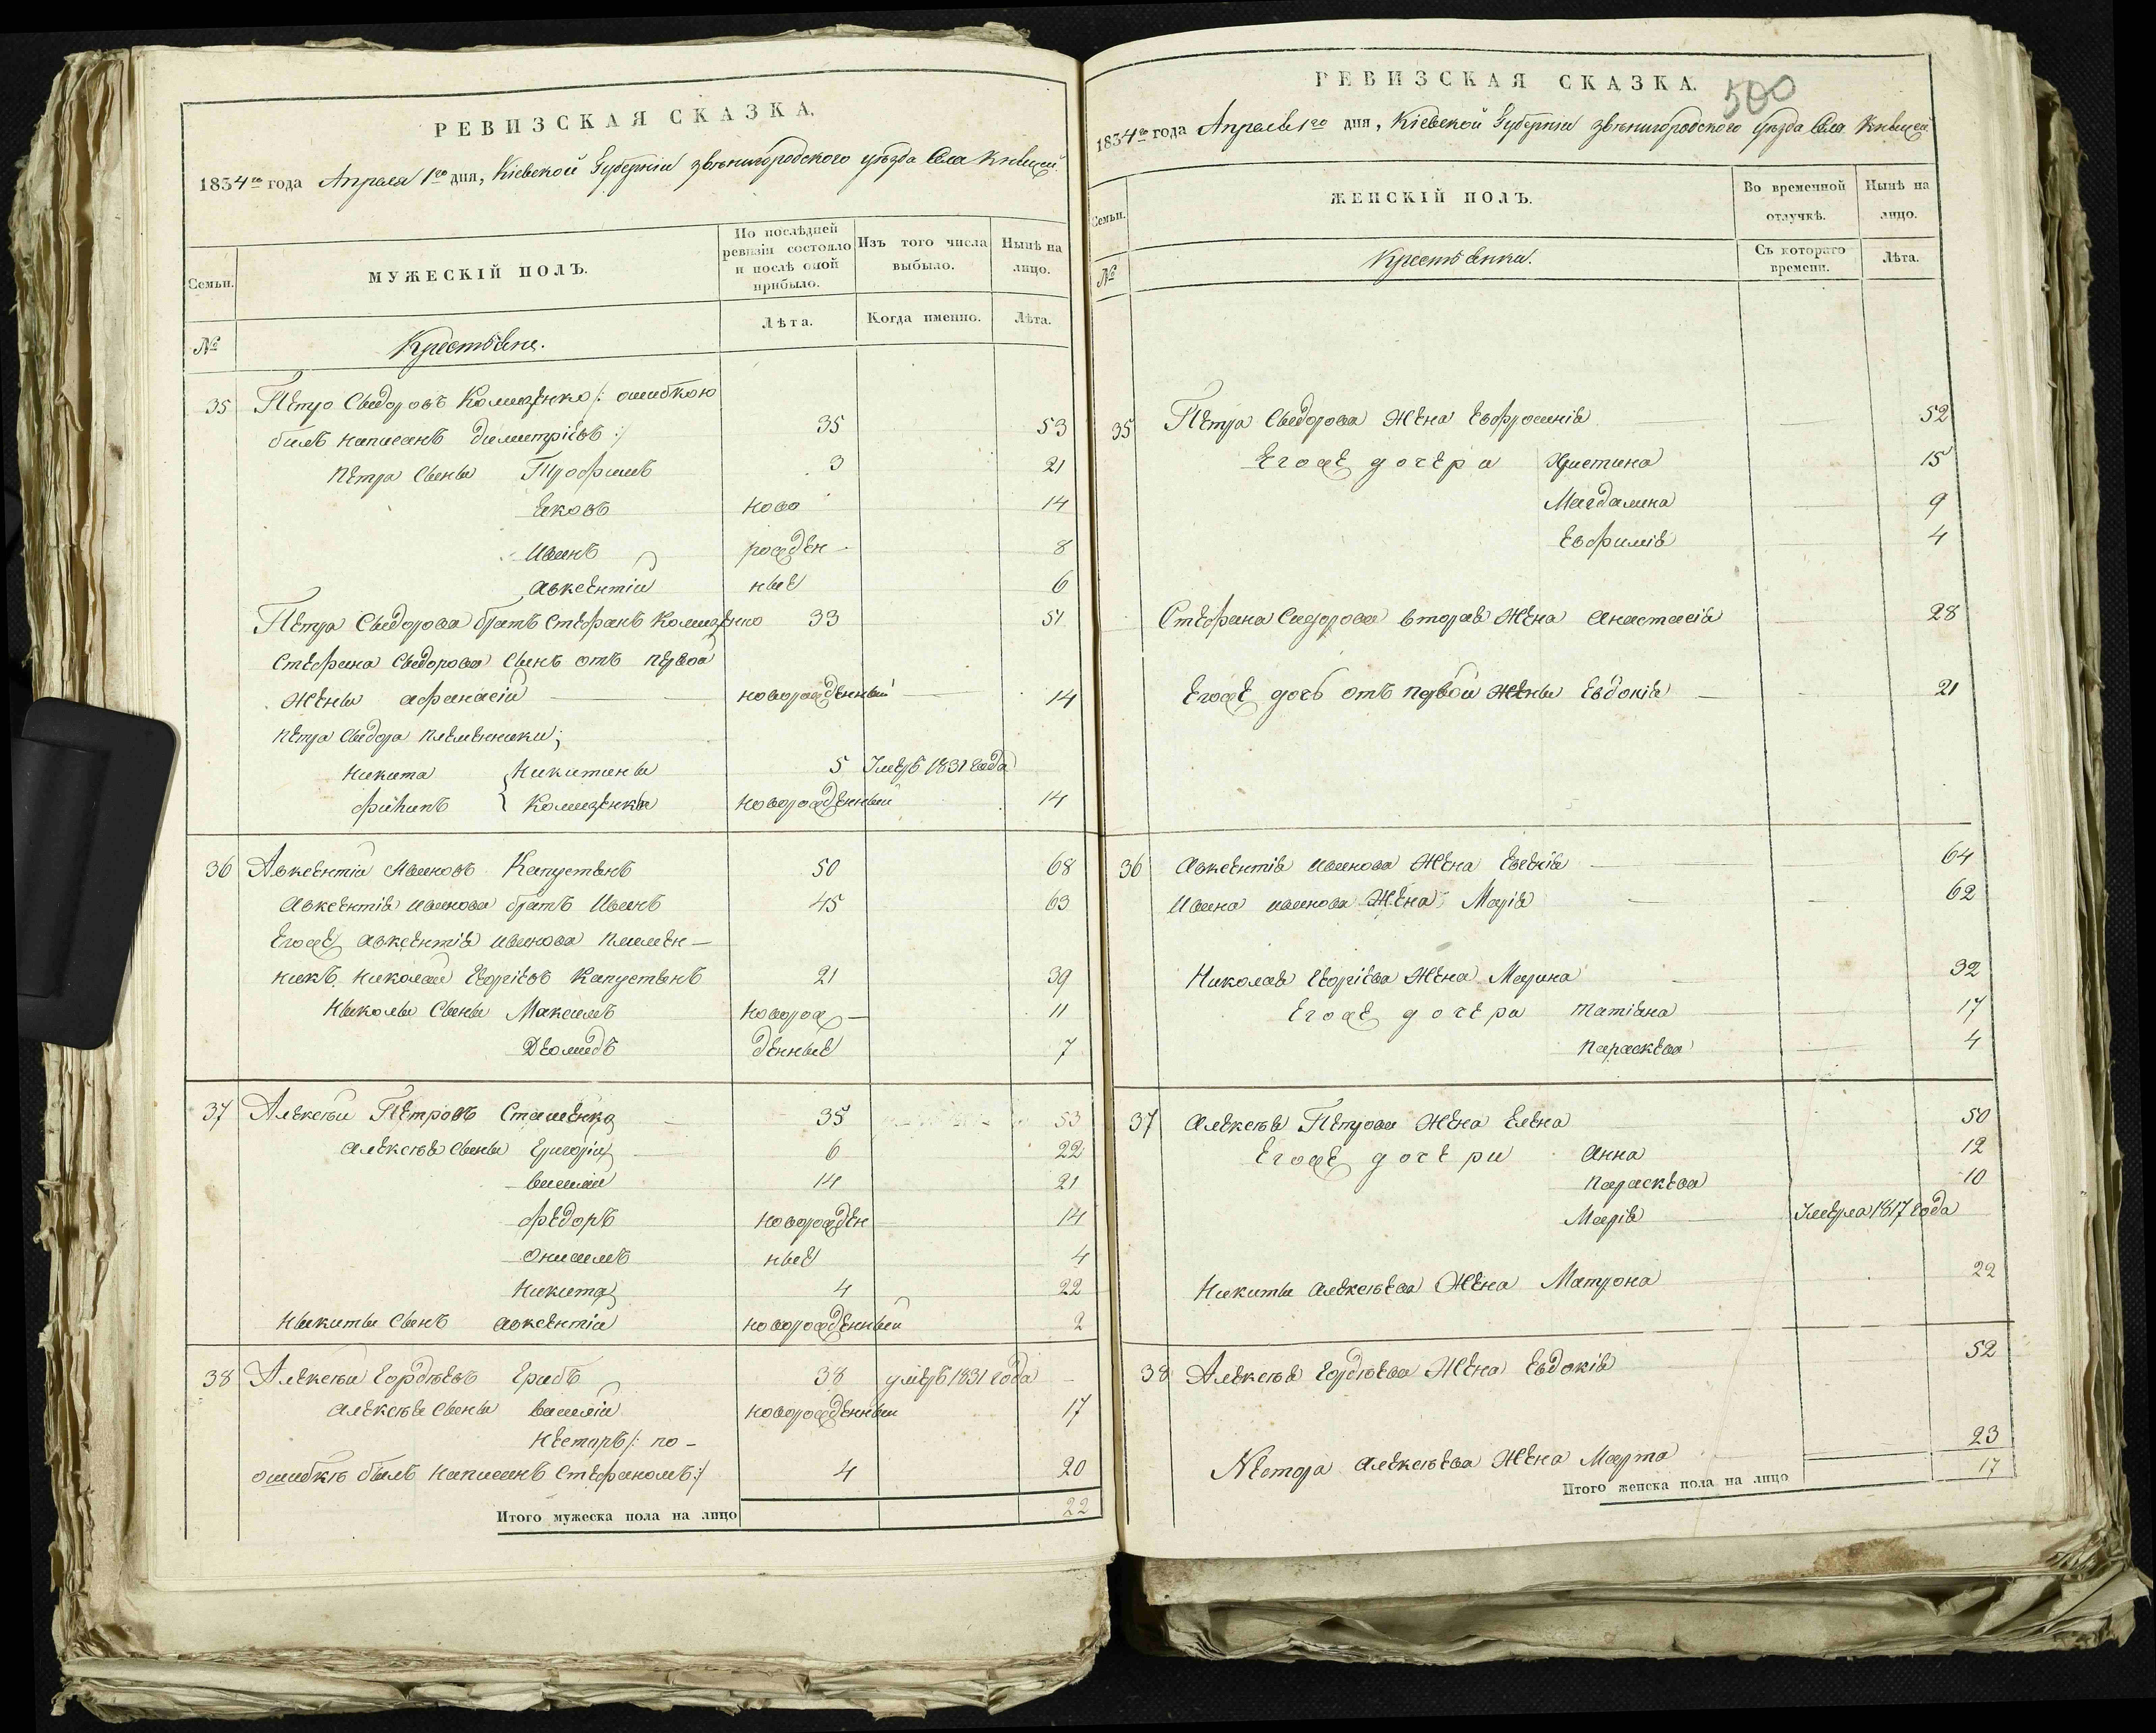 РЕВИЗСКАЯ СКАЗКА.
1834го года Апреля 1го дня, Кіевской Губерніи звѣнигородского уѣзда Села
Семьи.
МУЖЕСКІЙ ПОЛЪ.
По послѣдней ревизіи состояло и послѣ оной прибыло.
Изъ того числа выбыло.
Нынѣ на лицо.
№
Крестьяне.
Лѣта.
Когда именно.
Лѣта.
35 Петро Сыдоровъ /: ошибкою
билъ написанъ Димитріевъ :/ 35 53
Петра Сыны Трофимъ 3 21
Яковъ ново 14
Иванъ рожден- 8
Авксентіи ные 6
Петра Сыдорова братъ Стефанъ 33 51
Стефана Сыдорова Сынъ отъ первой
жены афанасіи новорожденный 14
Петра Сыдора племенники;
Никита Никитины 5 Умеръ 1831 года
филипъ новорожденный 14
36 Авксентіи Ивановъ Капустянъ 50 68
Авксентія Иванова братъ Иванъ 45 63
Егоже авксентія иванова племен-
никъ Николай Георгіевъ Капустянъ 21 39
Ныколы Сыны Максимъ новорож- 11
Дiомидъ денные 7
37 Алексѣй Петровъ Сташенко 35 53
Алексѣя Сыны Григорій 6 22
василій 14 21
федоръ новорожден 14
Онисимъ ные 4
Никита 4 22
Ныкиты Сынъ авксентіи новорожденный 2
38 Алексѣй Гордѣевъ Грибъ 38 умеръ 1831 года
алексѣя Сыны василіи новорожденный 17
Несторъ /: по-
ошибкѣ былъ написанъ Стефаномъ :/ 4 20
Итого мужеска пола на лицо 22
РЕВИЗСКАЯ СКАЗКА.
500
1834го года Апреля 1го дня, Кіевской Губерніи звѣнигородского уѣзда Села
Семьи.
ЖЕНСКІЙ ПОЛЪ.
Во временной отлучкѣ.
Нынѣ на лицо.
№
Крестьянки.
Съ котораго времени.
Лѣта.
35 Петра Сыдорова жена Евфросинія 52
Егоже дочери Христина 15
Магдалина 9
Евфимія 4
Стефана Сидорова вторая жена Анастасія 28
Егоже дочь отъ первой жены Евдокія 21
36 Авксентія иванова жена 64
Ивана иванова жена Марія 62
Николая Георгіева жена Марина 32
Егоже дочери татіяна 17
параскева 4
37 Алексѣя Петрова жена Елена 50
Егоже дочери Анна 12
параскева 10
Марія Умерла 1817 года
Никиты алексѣева жена Матрона 22
38 Алексѣя Гордѣева жена Евдокія 52
Нестора алексѣева жена Марта 23
Итого женска пола на лицо 17